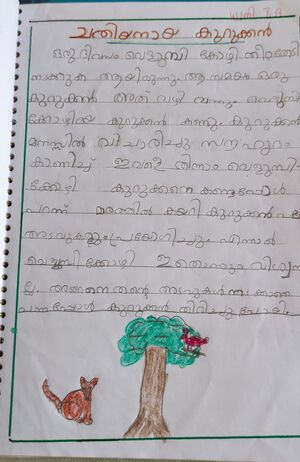 ചതിയനായ കുറുക്കൻ
ഒരു ദിവസം വെട്ടുമ്പി കോഴി തീറ്റതേടി
നടക്കുക ആയിരുന്നു. ആ സമയം ഒരു
കുറുക്കൻ അത് വഴി വന്നു.
കോഴിയെ കുറുക്കൻ കണ്ടു. കുറുക്കൻ
മനസ്സിൽ വിചാരിച്ചു സൗഹൃദം
കാണിച്ച് ഇവളെ തിന്നാം വെട്ടുമ്പി
ക്കോഴി കുറുക്കനെ കണ്ടപ്പോൾ
പറന്ന് മരത്തിൽ കയറി കുറുക്കൻ പല
അടവുകളും പ്രയോഗിച്ചു. എന്നാൽ
ഇതൊന്നും
അങ്ങനെ തന്റെ അടവുകൾ
വന്നപ്പോൾ കുറുക്കൻ തിരിച്ചു പോയി.